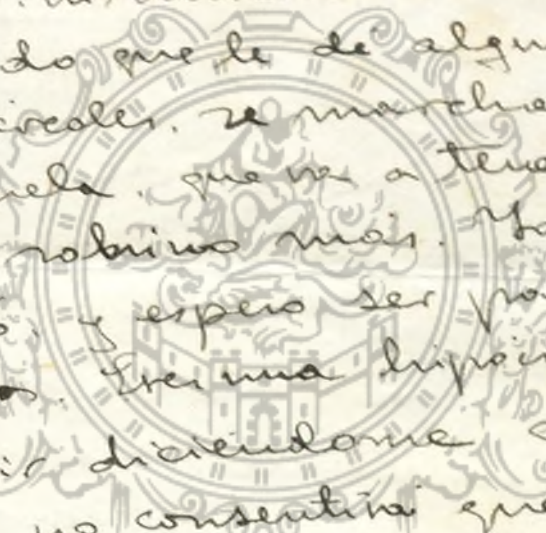 do que le dé algu
ircoles. se marcha
uela. que va a tene
sobrino más. Yo
o, y espero ser pa
Eres una hipócr
ir diciéndome
no consentirá que